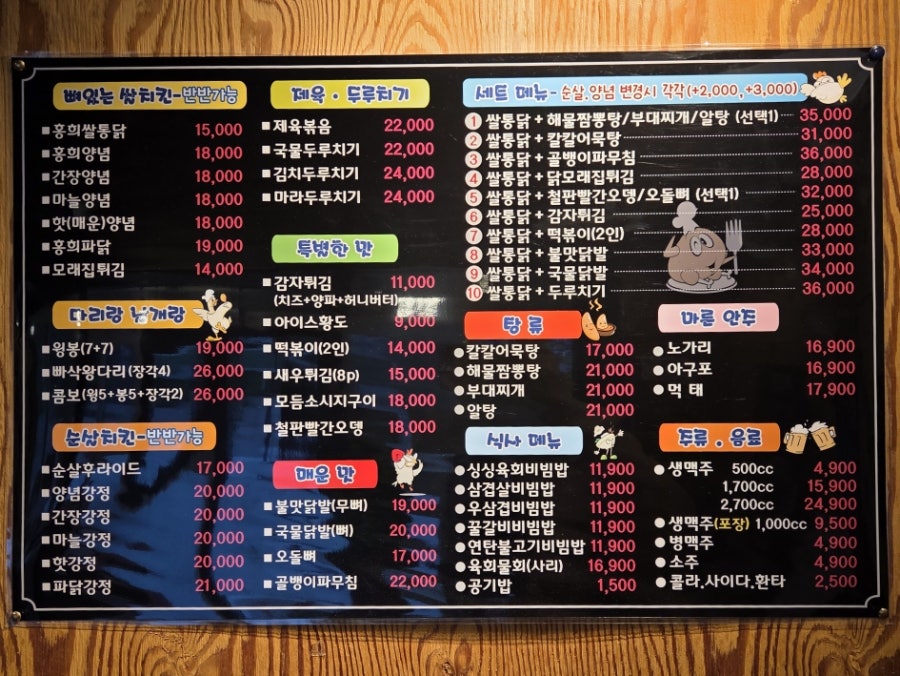 뼈있는 쌀치킨-반반가능
홍희쌀통닭 15,000
홍희양념 18,000
간장양념 18,000
마늘양념 18,000
핫(매운)양념 18,000
홍희파닭 19,000
모래집튀김 14,000
다리랑 날개랑
윙봉(7+7) 19,000
빠삭왕다리(장각4) 26,000
콤보(윙5+봉5+장각2) 26,000
순살치킨-반반가능
순살후라이드 17,000
양념강정 20,000
간장강정 20,000
마늘강정 20,000
핫강정 20,000
파닭강정 21,000
제육·두루치기
제육볶음 22,000
국물두루치기 22,000
김치두루치기 24,000
마라두루치기 24,000
특별한 맛
감자튀김 11,000
(치즈+양파+허니버터)
아이스황도 9,000
떡볶이(2인) 14,000
새우튀김(8p) 15,000
모듬소시지구이 18,000
철판빨간오뎅 18,000
매운 맛
불맛닭발(무뼈) 19,000
국물닭발(뼈) 20,000
오돌뼈 17,000
골뱅이파무침 22,000
세트 메뉴-순살.양념 변경시 각각(+2,000,+3,000)
1 쌀통닭+해물짬뽕탕/부대찌개/알탕 (선택1) 35,000
2 쌀통닭+칼칼어묵탕 31,000
3 쌀통닭+골뱅이파무침 36,000
4 쌀통닭+닭모래집튀김 28,000
5 쌀통닭+철판빨간오뎅/오돌뼈 (선택1) 32,000
6 쌀통닭+감자튀김 25,000
7 쌀통닭+떡볶이(2인) 28,000
8 쌀통닭+불맛닭발 33,000
9 쌀통닭+국물닭발 34,000
10 쌀통닭+두루치기 36,000
탕 류
칼칼어묵탕 17,000
해물짬뽕탕 21,000
부대찌개 21,000
알탕 21,000
식사 메뉴
싱싱육회비빔밥 11,900
삼겹살비빔밥 11,900
우삼겹비빔밥 11,900
꿀갈비비빔밥 11,900
연탄불고기비빔밥 11,900
육회물회(사리) 16,900
공기밥 1,500
마른 안주
노가리 16,900
아구포 16,900
먹 태 17,900
주류·음료
생맥주 500cc 4,900
1,700cc 15,900
2,700cc 24,900
생맥주(포장) 1,000cc 9,500
병맥주 4,900
소주 4,900
콜라.사이다.환타 2,500